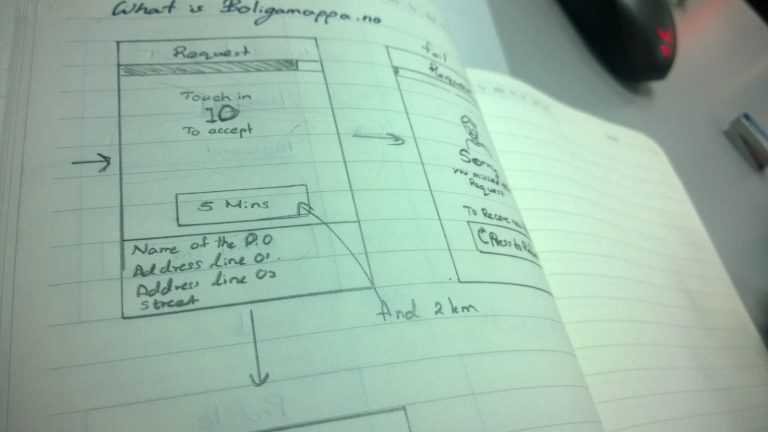 What is Boligamappa.no
Request
Touch in
10
To accept
5 Mins
Name of the P.O
Address line 01.
Address line 02
street
And 2 km
fail
Reques
Sorry
you missed
Request
To Rece
Press to R